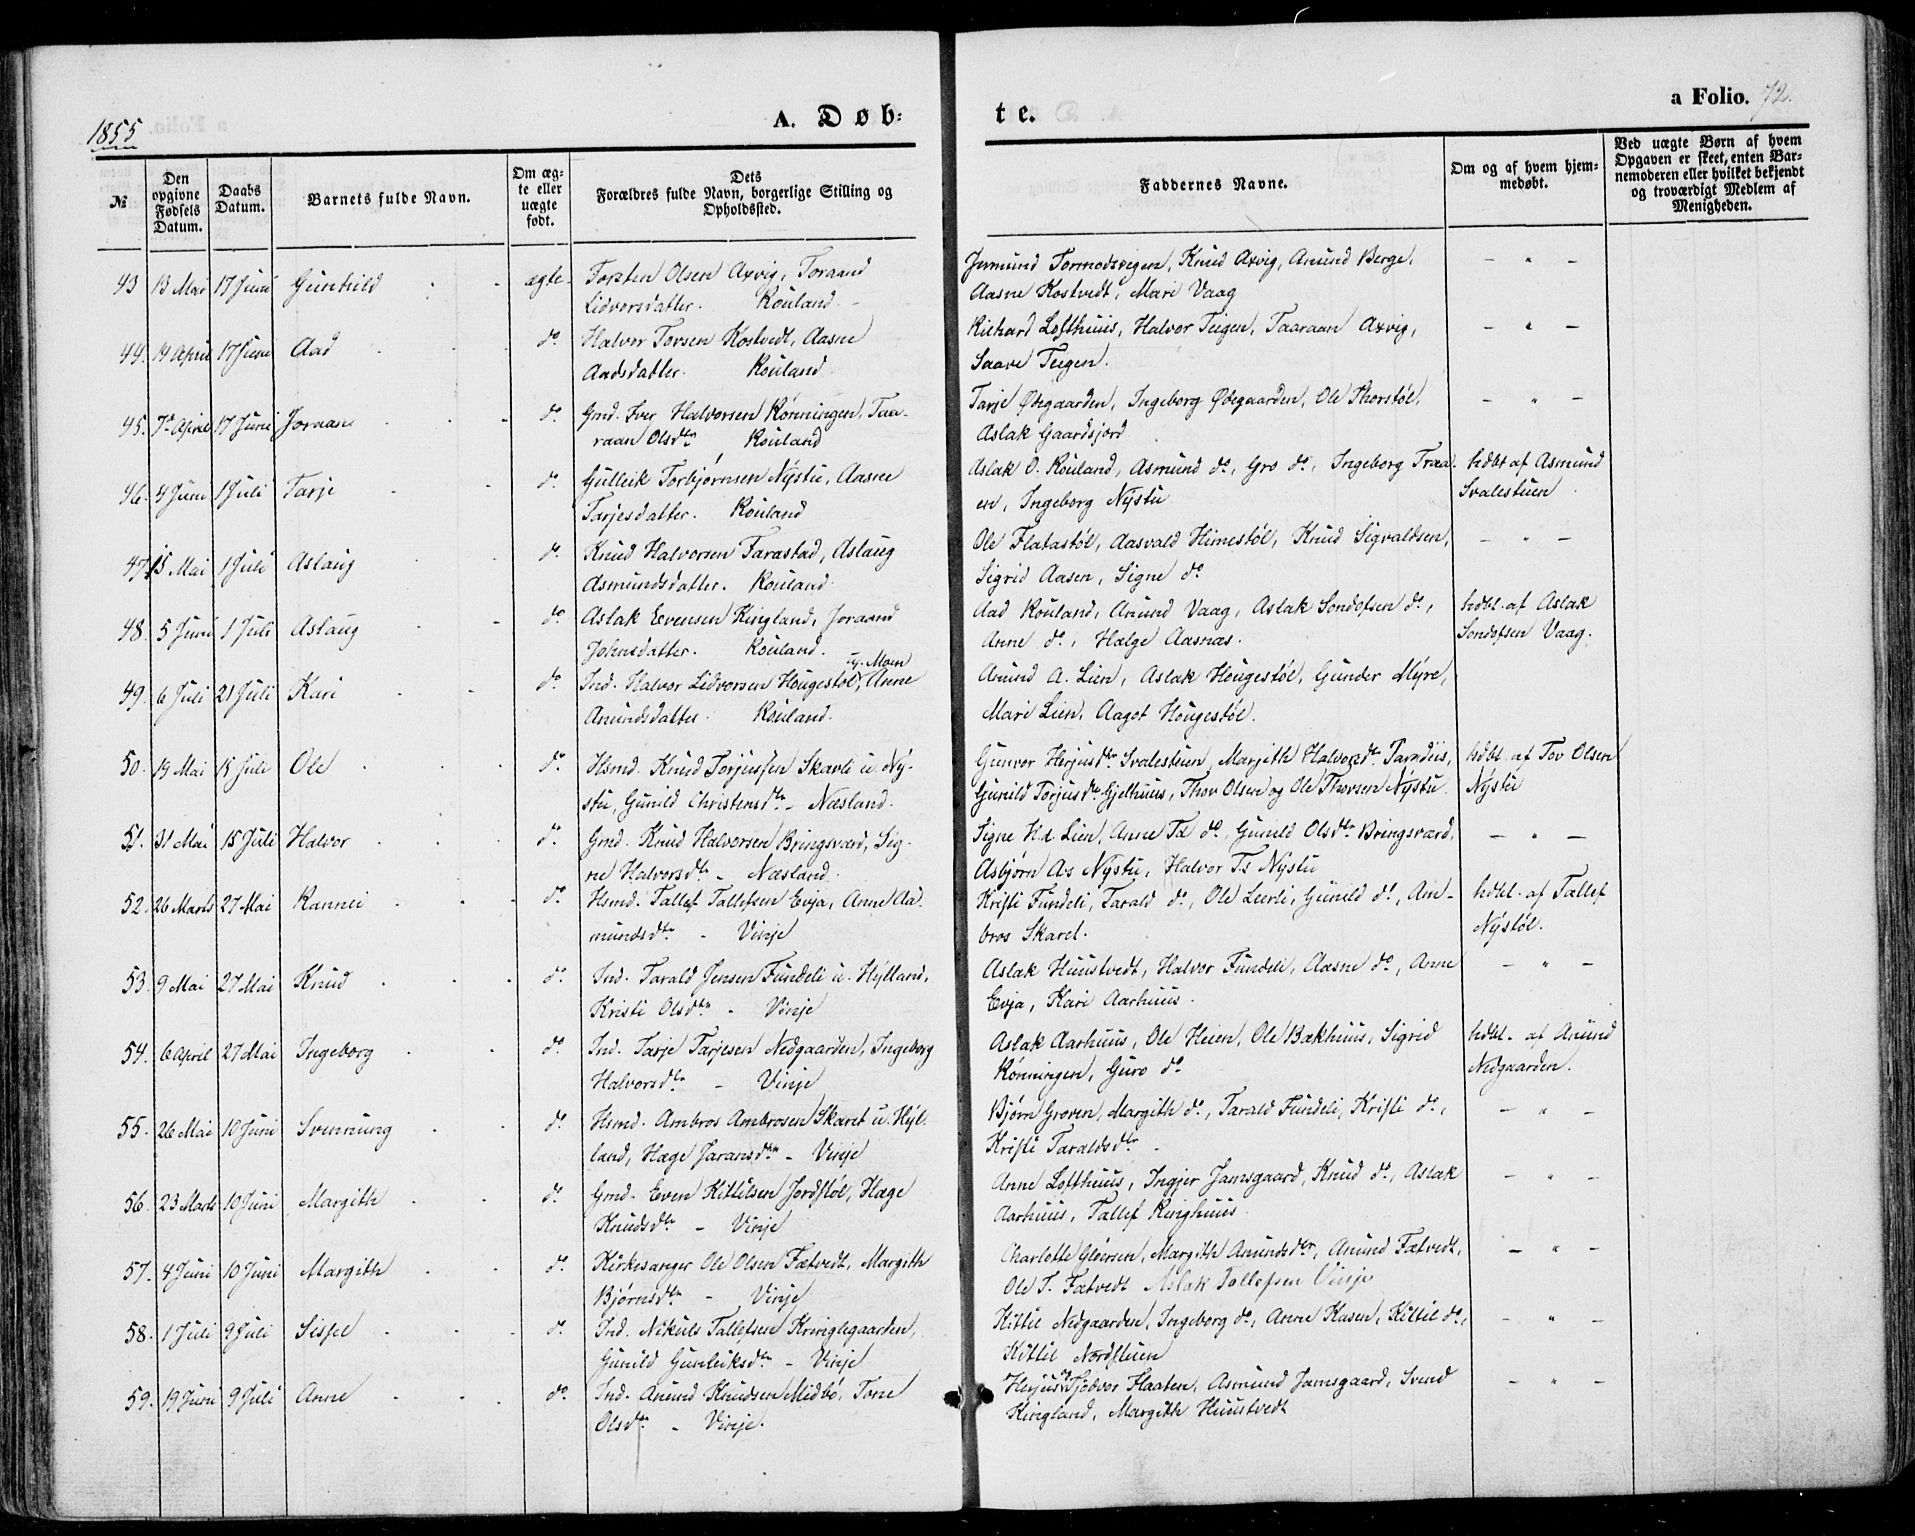 1855
A. Døb-
te.
a Folio. 72.
№
Den opgivne Fødsels Datum.
Daabs Datum.
Barnets fulde Navn.
Om ægte eller uægte født.
Dets Forældres fulde Navn, borgerlige Stilling og Opholdssted.
Faddernes Navne.
Om og af hvem hjemmedøbt.
Ved uægte Børn af hvem Opgaven er skeet, enten Barnemoderen eller hvilket bekjendt og troværdigt Medlem af Menigheden.
43 13 Mai 17 Juni Gunhild ægte Torsten Olsen Axvig, Toraand
Lidvorsdatter. Rouland
Jermund Tormodsvigen, Knud Axvig, Anund Berge, - " -
Aasne Kostvedt, Mari Vaag
44. 19 April 17 Juni Aad do Halvor Torsen Kostvedt, Aasne
Aadsdatter. Rouland
Richard Lofthuus, Halvor Teigen, Taaraan Axvig, - " -
Saave Teigen.
45. 7de April 17 Juni Joraan do Grnd. Iver Halvorsen Rønningen, Taa-
raan Olsdtr Rouland
Tarje Ødegaarden, Ingeborg Ødegaarden, Ole Thorstøl, - " -
Aslak Gaardsjord
46. 4 Juni 1 Juli Tarje do Gulleik Torbjørnsen Nystu, Aasne
Tarjesdatter. Rouland
Aslak O. Rouland, Asmund do, Gro do, Ingeborg Traa- hdbt af Asmund
en, Ingeborg Nystu Svalestuen
47. 15 Mai 1 Juli Aslaug do Knud Halvorsen Farastad, Aslaug
Asmundsdatter. Rouland
Ole Flatastøl, Aasvald Himestøl, Knud Sigvaldsen, - " -
Sigrid Aasen, Signe do
48. 5 Juni 1 Juli Aslaug do Aslak Evensen Kingland, Joraand
Johnsdatter. Rouland.
Aad Rouland, Anund Vaag, Aslak Sondofsen do, hdbt. af Aslak
Anne do, Halge Aasnas. Sondofsen Vaag.
49. 6 Juli 21 Juli Kari do Ind. Halvor Lidvorsen Hougestøl, u. Moen Anne
Anundsdatter. Rouland.
Anund A. Lien, Aslak Hougestøl, Gunder Myre,
Mari Lien, Aagot Hougestøl.
50. 19 Mai 15 Juli Ole do Hsmd. Knud Torjussen Skavli u. Ny-
stu, Gunild Christensdtr - Næsland.
Gunvor Herjusdtr Svalestuen, Margith Halvorsdtr hdbt. af Tov Olsen
Gunild Torjusdtr Gjelhuus, Thov Olsen og Ole Thovsen Nystu. Nystu
51. 31 Mai 15 Juli Halvor do Grnd. Knud Halvorsen Bringsværd, Sig-
ne Halvorsdtr - Næsland.
Signe H.d. Lien, Anne T.d. do, Gunild Olsdtr Bringsværd, - " -
Asbjørn A.s Nystu, Halvor T.s Nystu
52. 26 Marts 27 Mai Rannei do Hsmd. Tallef Tallefsen Evja, Anne Aa-
mundsdtr - Vinje
Kristi Fundeli, Tarald do, Ole Leerli, Gunild do, Am- hdbt. af Tallef
bros Skaret. Nystøl.
53. 9 Mai 27 Mai Knud do Ind. Tarald Jensen Fundeli u. Hylland,
Kristi Olsdtr - Vinje
Aslak Huustvedt, Halvor Fundeli, Aasne do, Anne - " -
Evja, Kari Aarhuus.
54. 6 April 27 Mai Ingeborg do Ind. Tarje Tarjesen Nedgaarden, Ingeborg
Halvorsdtr - Vinje
Aslak Aarhuus, Ole Heien, Ole Bækhuus, Sigrid hdbt. af Anund
Rønningen, Guro do Nedgaarden.
55. 26 Mai 10 Juni Svennung do Hsmd. Ambros Ambrosen Skaret u. Hyl-
land, Hæge Jaransdtr - Vinje
Bjørn Groven, Margith do, Tarald Fundeli, Kristi do, - " -
Kristi Taraldsdtr
56. 23 Marts 10 Juni Margith do Grnd. Even Kittilsen Jordstøl, Hæge
Knudsdtr - Vinje
Anne Lofthuus, Ingjer Jamsgaard, Knud do, Aslak - " -
Aarhuus, Tallef Ringhuus
57. 4 Juni 10 Juni Margith do Kirkesanger Ole Olsen Fætvedt, Margith
Bjørnsdtr - Vinje
Charlotte Gløersen, Margith Anundsdtr, Anund Fætvedt, - " -
Ole T. Fætvedt Aslak Tallefsen Vinje
58. 1 Juli 9 Juli Sissel do Ind. Nikuls Tallefsen Kringlegaarden,
Gunild Gunleiksdtr - Vinje
Kittil Nedgaarden, Ingeborg do, Anne Kasen, Kittil do, - " -
Kittil Nordstuen
59. 19 Juni 9 Juli Anne do Ind. Anund Knudsen Midbø, Tone
Olsdtr - Vinje.
Herjus Tjødvor Flaaten, Asmund Jamsgaard, Svend - " -
Kingland, Margith Huustvedt